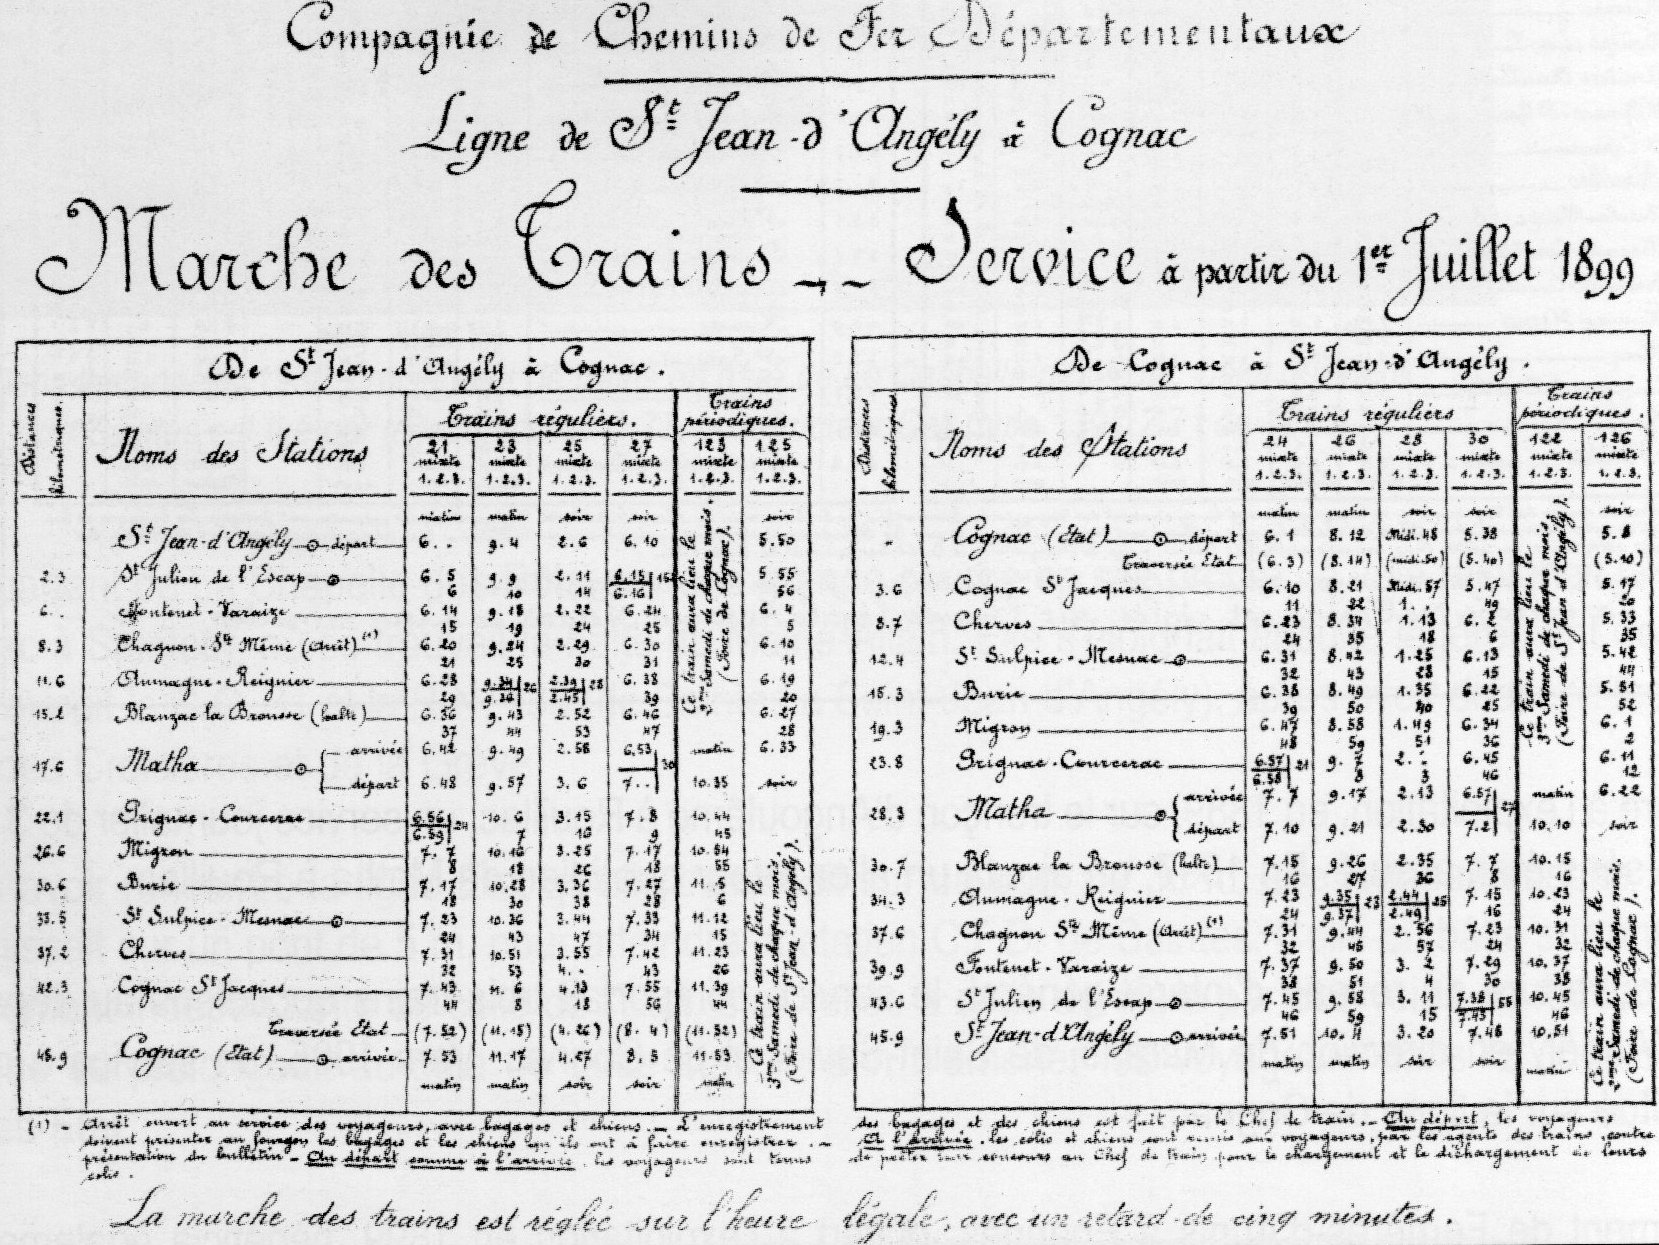 Compagnie de Chemins de Fer Départementaux
Ligne de St Jean-d'Angély à Cognac
Marche des Trains -- Service à partir du 1er Juillet 1899
De St Jean-d'Angély à Cognac.
Distances kilométriques.
Noms des Stations
Trains réguliers.
Trains périodiques.
21 23 25 27 123 125
mixte mixte mixte mixte mixte mixte
1.2.3. 1.2.3. 1.2.3. 1.2.3. 1.2.3. 1.2.3.
matin matin soir soir soir
St Jean-d'Angély départ 6.. 9.4 2.6 6.10 5.50
2.3 St Julien de l'Escap 6.5 9.9 2.11 6.15 5.55
6 10 14 6.16 56
6. Fontenet-Varaize 6.14 9.18 2.22 6.24 6.4
15 19 24 25 5
8.3 Chagnon-Ste Même (Arrêt) (1) 6.20 9.24 2.29 6.30 6.10
21 25 30 31 11
11.6 Aumagne-Reignier 6.28 9.34 26 2.39 28 6.38 6.19
29 9.36 2.45 39 20
15.2 Blanzac la Brousse (halte) 6.36 9.43 2.52 6.46 6.27
37 44 53 47 28
17.6 Matha arrivée 6.42 9.49 2.58 6.53 30 matin 6.33
départ 6.48 9.57 3.6 7.. 10.35 soir
22.1 Prignac-Courcerac 6.56 24 10.6 3.15 7.8 10.44
6.59 7 16 9 45
26.6 Migron 7.7 10.16 3.25 7.17 10.54
8 18 26 18 55
30.6 Burie 7.17 10.28 3.36 7.27 11.5
18 30 38 28 6
33.5 St Sulpice-Mesnac 7.23 10.36 3.44 7.33 11.12
24 43 47 34 15
37.2 Cherves 7.31 10.51 3.55 7.42 11.23
32 53 4.. 43 26
42.3 Cognac St Jacques 7.43 11.6 4.13 7.55 11.39
44 8 18 56 44
Traversée Etat (7.52) (11.15) (4.26) (8.4) (11.52)
45.9 Cognac (Etat) arrivée 7.53 11.17 4.27 8.5 11.53
matin matin soir soir matin
Ce train aura lieu le
2me Samedi de chaque mois.
(Foire de Cognac).
Ce train aura lieu le
3me Samedi de chaque mois.
(Foire de St Jean-d'Angély).
De Cognac à St Jean-d'Angély.
Distances kilométriques.
Noms des Stations
Trains réguliers
Trains périodiques.
24 26 28 30 122 126
mixte mixte mixte mixte mixte mixte
1.2.3. 1.2.3. 1.2.3. 1.2.3. 1.2.3. 1.2.3.
matin matin soir soir soir
Cognac (Etat) départ 6.1 8.12 Midi.48 5.38 5.8
Traversée Etat (6.3) (8.14) (midi.50) (5.40) (5.10)
3.6 Cognac St Jacques 6.10 8.21 Midi.57 5.47 5.17
11 22 1.. 49 20
8.7 Cherves 6.23 8.34 1.13 6.2 5.33
24 35 18 6 35
12.4 St Sulpice-Mesnac 6.31 8.42 1.25 6.13 5.42
32 43 28 15 44
15.3 Burie 6.38 8.49 1.35 6.22 5.51
39 50 40 25 52
19.3 Migron 6.47 8.58 1.49 6.34 6.1
48 59 51 36 2
23.8 Prignac-Courcerac 6.57 21 9.7 2.. 6.45 6.11
6.58 8 3 46 12
28.3 Matha arrivée 7.7 9.17 2.13 6.57 27 matin 6.22
départ 7.10 9.21 2.30 7.2 10.10 soir
30.7 Blanzac la Brousse (halte) 7.15 9.26 2.35 7.7 10.15
16 27 36 8 16
34.3 Aumagne-Reignier 7.23 9.35 23 2.44 25 7.15 10.23
24 9.37 2.49 16 24
37.6 Chagnon Ste Même (Arrêt) (1) 7.31 9.44 2.56 7.23 10.31
32 45 57 24 32
39.9 Fontenet-Varaize 7.37 9.50 3.2 7.29 10.37
38 51 4 30 38
43.6 St Julien de l'Escap 7.45 9.58 3.11 7.38 10.45
46 59 15 7.43 46
45.9 St Jean-d'Angély arrivée 7.51 10.4 3.20 7.48 10.51
matin matin soir soir matin
Ce train aura lieu le
3me Samedi de chaque mois,
(Foire de St Jean d'Angély).
Ce train aura lieu le
2me Samedi de chaque mois.
(Foire de Cognac).
(1) - Arrêt ouvert au service des voyageurs, avec bagages et chiens. - L'enregistrement des bagages et des chiens est fait par le Chef de train. - Au départ, les voyageurs
doivent présenter au fourgon les bagages et les chiens qu'ils ont à faire enregistrer. - A l'arrivée, les colis et chiens sont remis aux voyageurs, par les agents des trains, contre
présentation du bulletin - Au départ comme à l'arrivée, les voyageurs sont tenus de prêter leur concours au Chef de train pour le chargement et le déchargement de leurs
colis.
La marche des trains est réglée sur l'heure légale, avec un retard de cinq minutes.